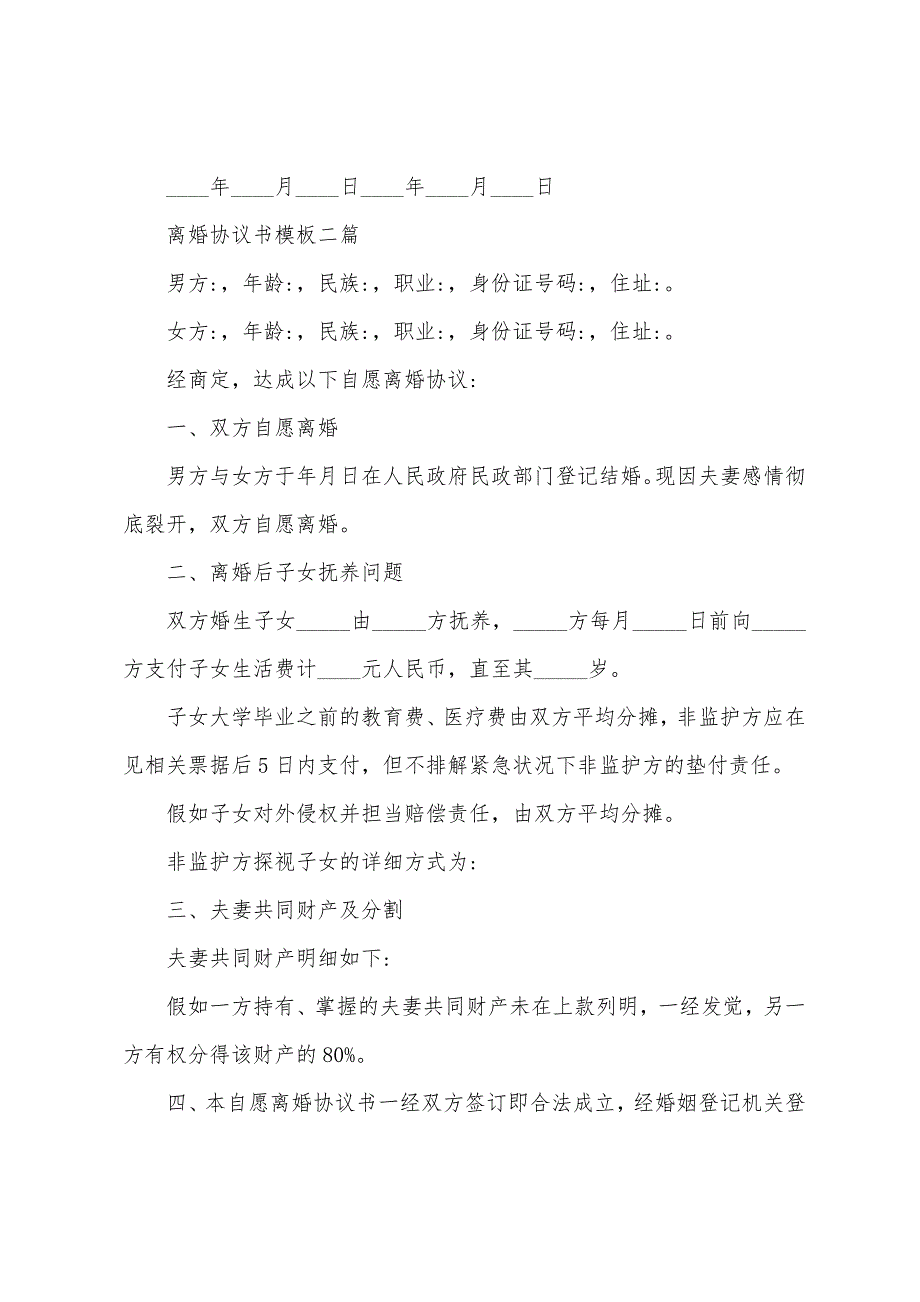 ____年____月____日____年____月____日
离婚协议书模板二篇
男方:，年龄:，民族:，职业:，身份证号码:，住址:。
女方:，年龄:，民族:，职业:，身份证号码:，住址:。
经商定，达成以下自愿离婚协议:
一、双方自愿离婚
男方与女方于年月日在人民政府民政部门登记结婚。现因夫妻感情彻
底裂开，双方自愿离婚。
二、离婚后子女抚养问题
双方婚生子女_____由_____方抚养，_____方每月_____日前向_____
方支付子女生活费计____元人民币，直至其_____岁。
子女大学毕业之前的教育费、医疗费由双方平均分摊，非监护方应在
见相关票据后 5 日内支付，但不排解紧急状况下非监护方的垫付责任。
假如子女对外侵权并担当赔偿责任，由双方平均分摊。
非监护方探视子女的详细方式为:
三、夫妻共同财产及分割
夫妻共同财产明细如下:
假如一方持有、掌握的夫妻共同财产未在上款列明，一经发觉，另一
方有权分得该财产的 80%。
四、本自愿离婚协议书一经双方签订即合法成立，经婚姻登记机关登